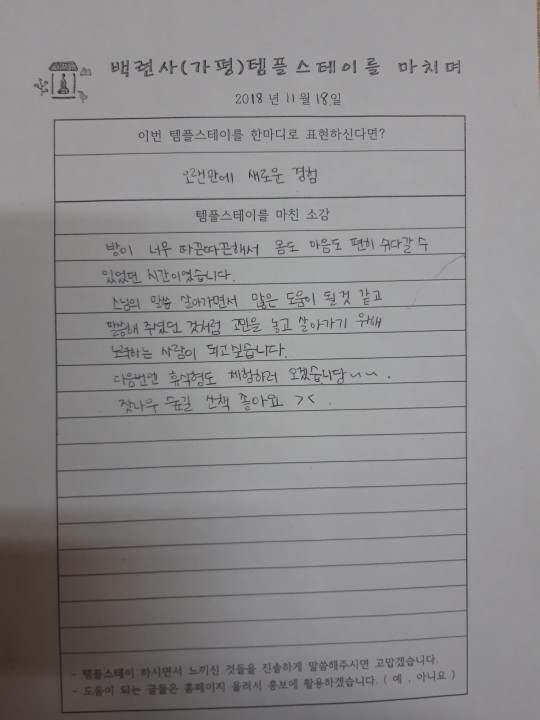 백련사(가평)템플스테이를 마치며
2018년 11월 18일
이번 템플스테이를 한마디로 표현하신다면?
오랜만에 새로운 경험
템플스테이를 마친 소감
방이 너무 따끈따끈해서 몸도 마음도 편히 쉬다갈 수
있었던 시간이었습니다.
스님의 말씀 살아가면서 많은 도움이 될것 같고
말씀해 주셨던 것처럼 고민을 놓고 살아가기 위해
노력하는 사람이 되고싶습니다.
다음번엔 휴식형도 체험하러 오겠습니당~~.
잣나무 숲길 산책 좋아요 ><.
- 템플스테이 하시면서 느끼신 것들을 진솔하게 말씀해주시면 고맙겠습니다.
- 도움이 되는 글들은 홈페이지 올려서 홍보에 활용하겠습니다. ( 예 , 아니요 )